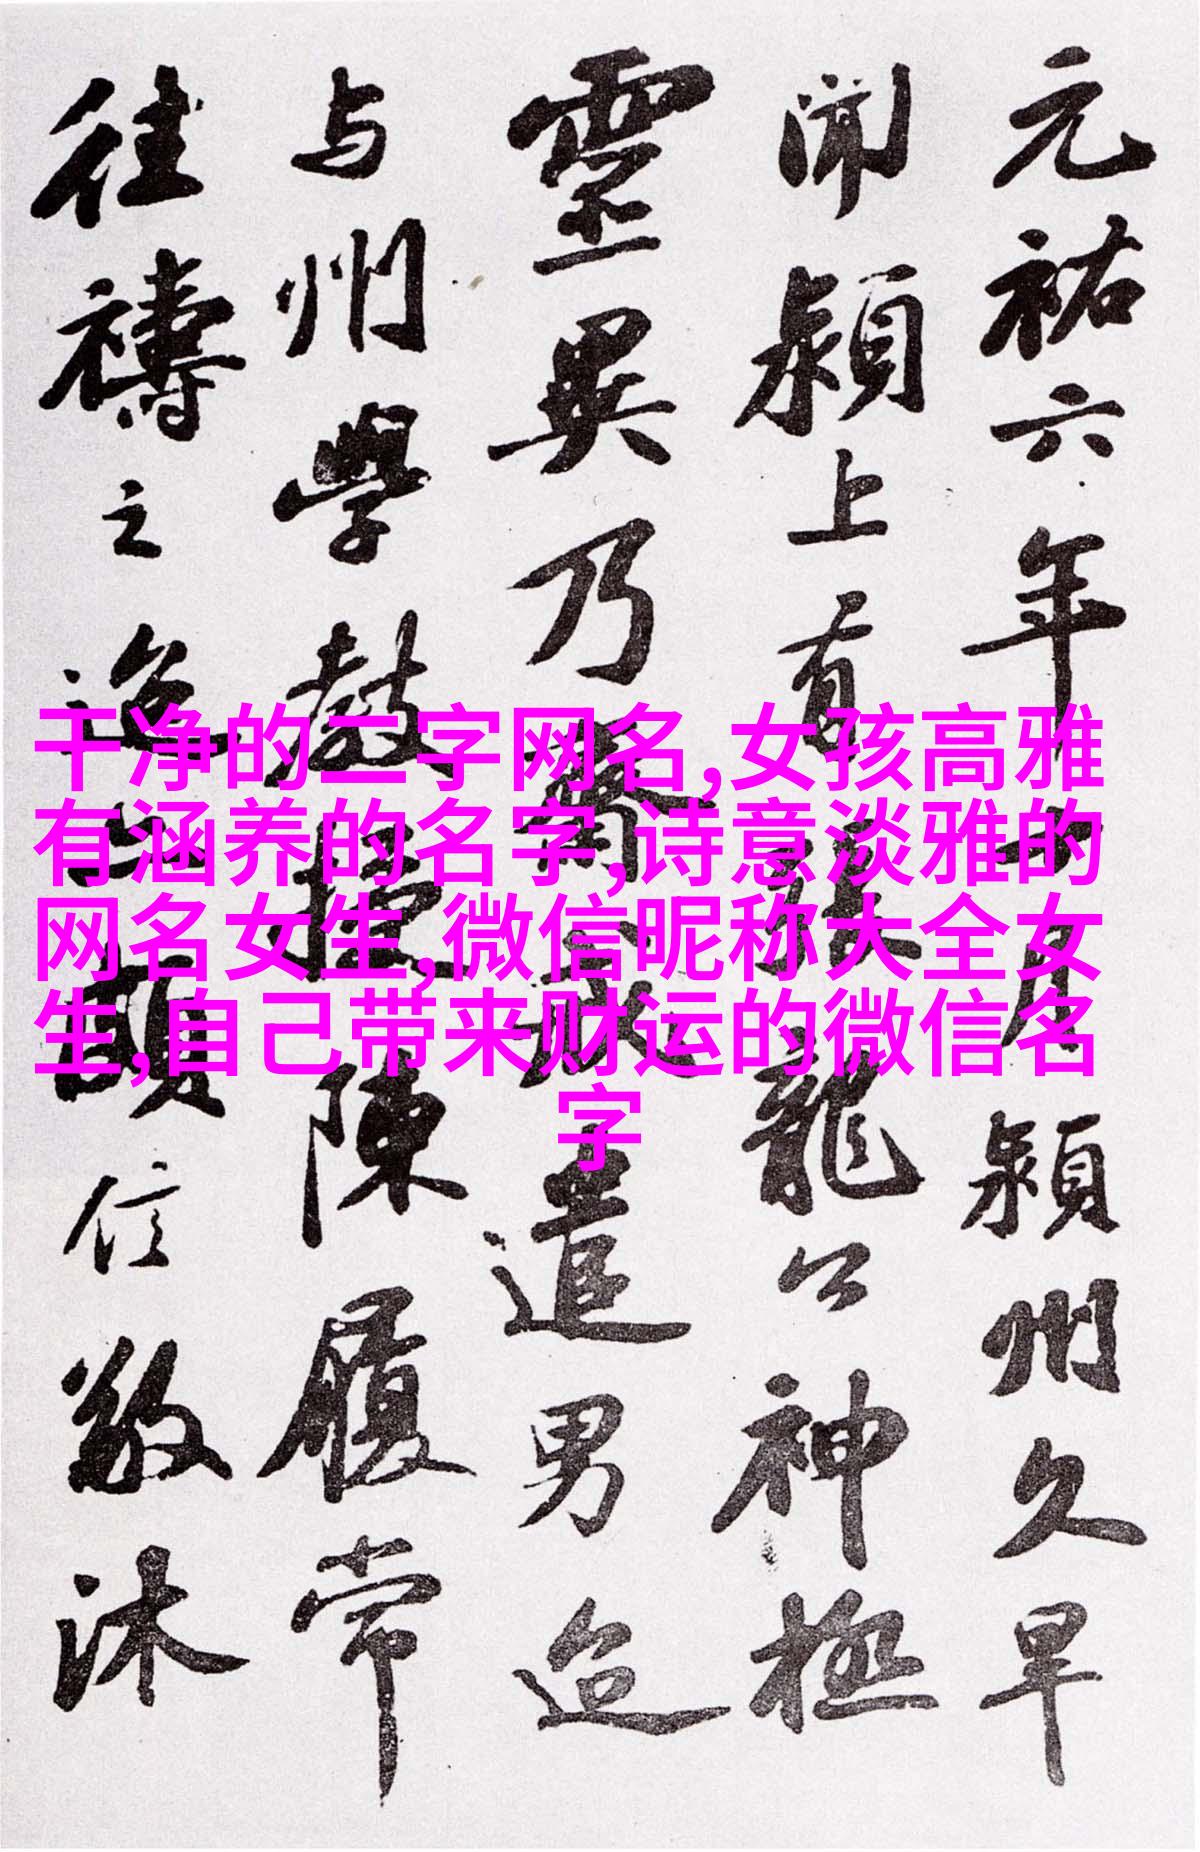 元祐六年十月潁州久旱
聞潁上有張龍公神極
靈異乃齋戒遣男迨
与州學教授陳履常
往禱之迨亦頗信敬沐
干净的二字网名,女孩高雅
有涵养的名字,诗意淡雅的
网名女生,微信昵称大全女
生,自己带来财运的微信名
字